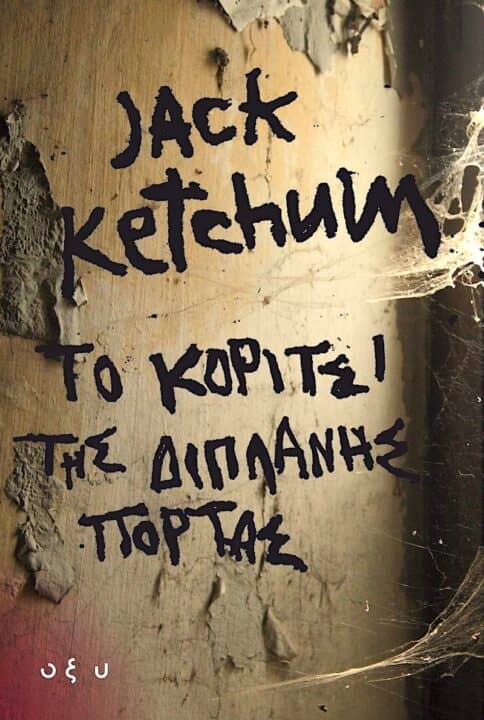 JACK
Ketchum
ΤΟ ΚΟΡΙΤΣΙ
ΤΗΣ ΔΙΠΛΑΝΗΣ
ΠΟΡΤΑΣ
οξυ